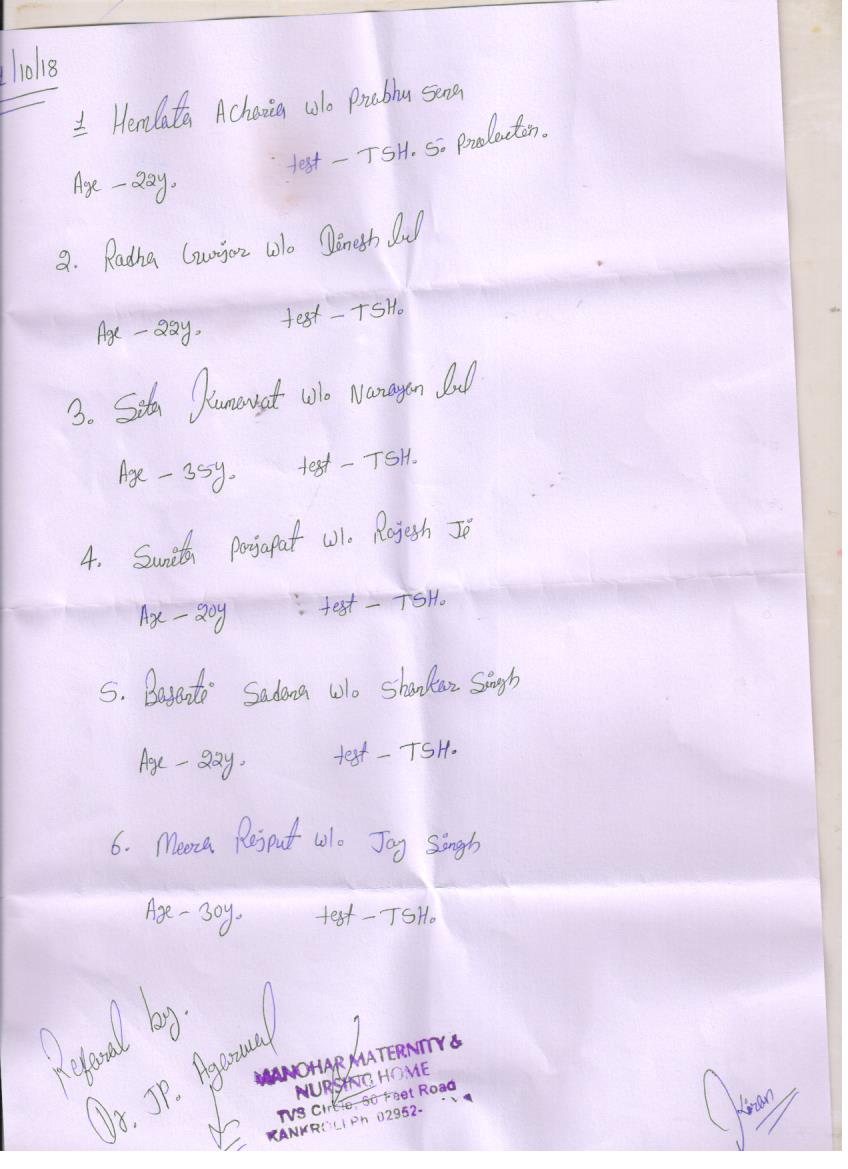 /10/18
1 Hemlata Acharia w/o Prabhu Sena
Age - 22y. test - TSH. S. Prolectin.
2. Radha Gurjar w/o Dinesh lal
Age - 22y. test - TSH.
3. Sita Kumavat w/o Narayan lal
Age - 35y. test - TSH.
4. Sunita Porjapat w/o Rajesh Ji
Age - 20y test - TSH.
5. Basanti Sadana w/o Shankar Singh
Age - 22y. test - TSH.
6. Meera Rajput w/o Jay Singh
Age - 30y. test - TSH.
Referal by.
Dr. JP. Agarwal
MANOHAR MATERNITY &
NURSING HOME
TVS Circle, 80 Feet Road
KANKROLI Ph 02952-
Kiran